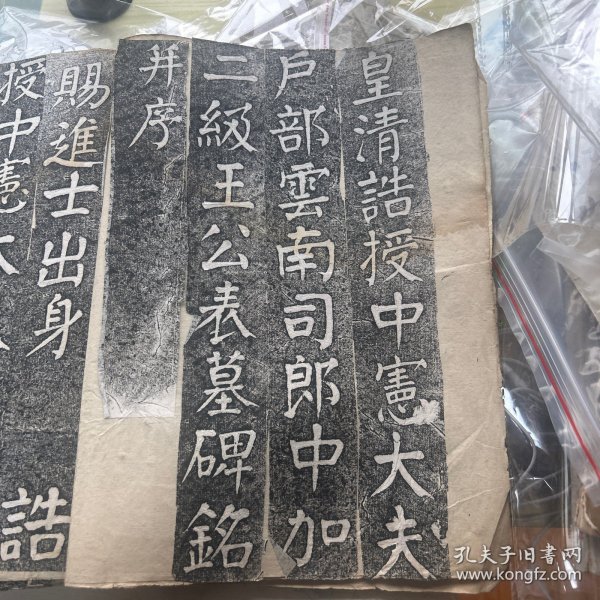 皇清誥授中憲大夫
戶部雲南司郎中加
二級王公表墓碑銘
并序
賜進士出身
誥
授中憲大
孔夫子旧书网
www.kongfz.com